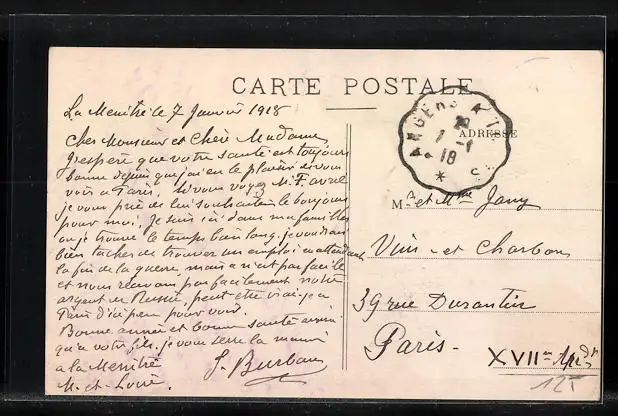 CARTE POSTALE
La Menitré le 7 Janvier 1918
Cher Monsieur et Chère Madame
J'espère que votre santé est toujours
bonne depuis que j'ai eu le plaisir de vous
voir a Paris, si vous voyez M. Favrel
je vous prie de lui souhaiter le bonjour
pour moi. Je suis ici dans ma famille
ou je trouve le temps bien long. je voudrais
bien tacher de trouver un emploi en attendant
la fin de la guerre, mais a n'est pas facile
et nous recevons pas facilement notre
argent de Russie, peut être irai-je a
Paris d'ici peu pour voir.
Bonne année et bonne santé ainsi
qu'a votre fils. je vous serre la main
a la Menitré
M.-et-Loire.
J. Burban
ANGERS A T
7 -1
18
ADRESSE
Mr et Mme Jany
Vins et Charbons
39 rue Durantin
Paris-
XVIIme Arrdt
12F